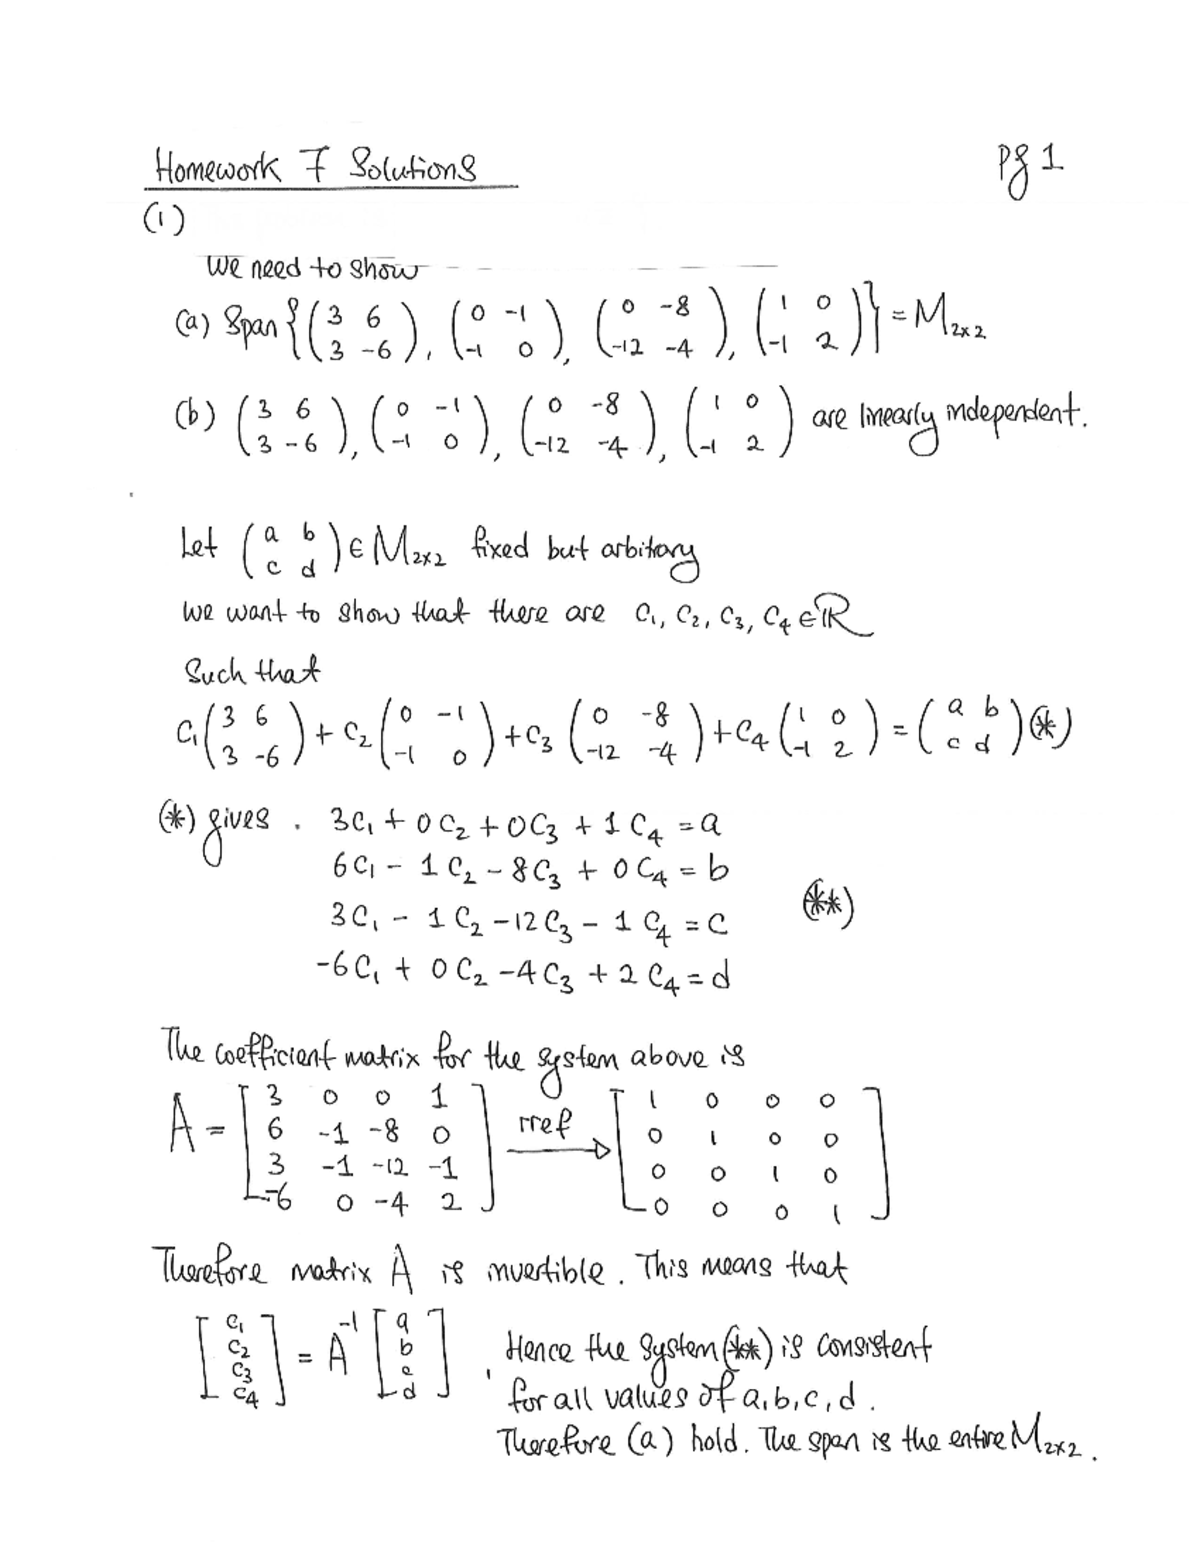 Homework 7 Solutions
pg 1
(1)
We need to show
(a) Span{(3 6; 3 -6), (0 -1; -1 0), (0 -8; -12 -4), (1 0; -1 2)} = M2x2
(b) (3 6; 3 -6), (0 -1; -1 0), (0 -8; -12 -4), (1 0; -1 2) are linearly independent.
Let (a b; c d) ∈ M2x2 fixed but arbitrary
we want to show that there are C1, C2, C3, C4 ∈ ℝ
Such that
C1(3 6; 3 -6) + C2(0 -1; -1 0) + C3(0 -8; -12 -4) + C4(1 0; -1 2) = (a b; c d) (*)
(*) gives . 3C1 + 0C2 + 0C3 + 1C4 = a
6C1 - 1C2 - 8C3 + 0C4 = b
3C1 - 1C2 - 12C3 - 1C4 = c
(**)
-6C1 + 0C2 - 4C3 + 2C4 = d
The coefficient matrix for the system above is
A = [3 0 0 1; 6 -1 -8 0; 3 -1 -12 -1; -6 0 -4 2] rref → [1 0 0 0; 0 1 0 0; 0 0 1 0; 0 0 0 1]
Therefore matrix A is invertible. This means that
[C1; C2; C3; C4] = A^-1 [a; b; c; d] . Hence the System (**) is consistent
for all values of a, b, c, d.
Therefore (a) hold. The span is the entire M2x2.